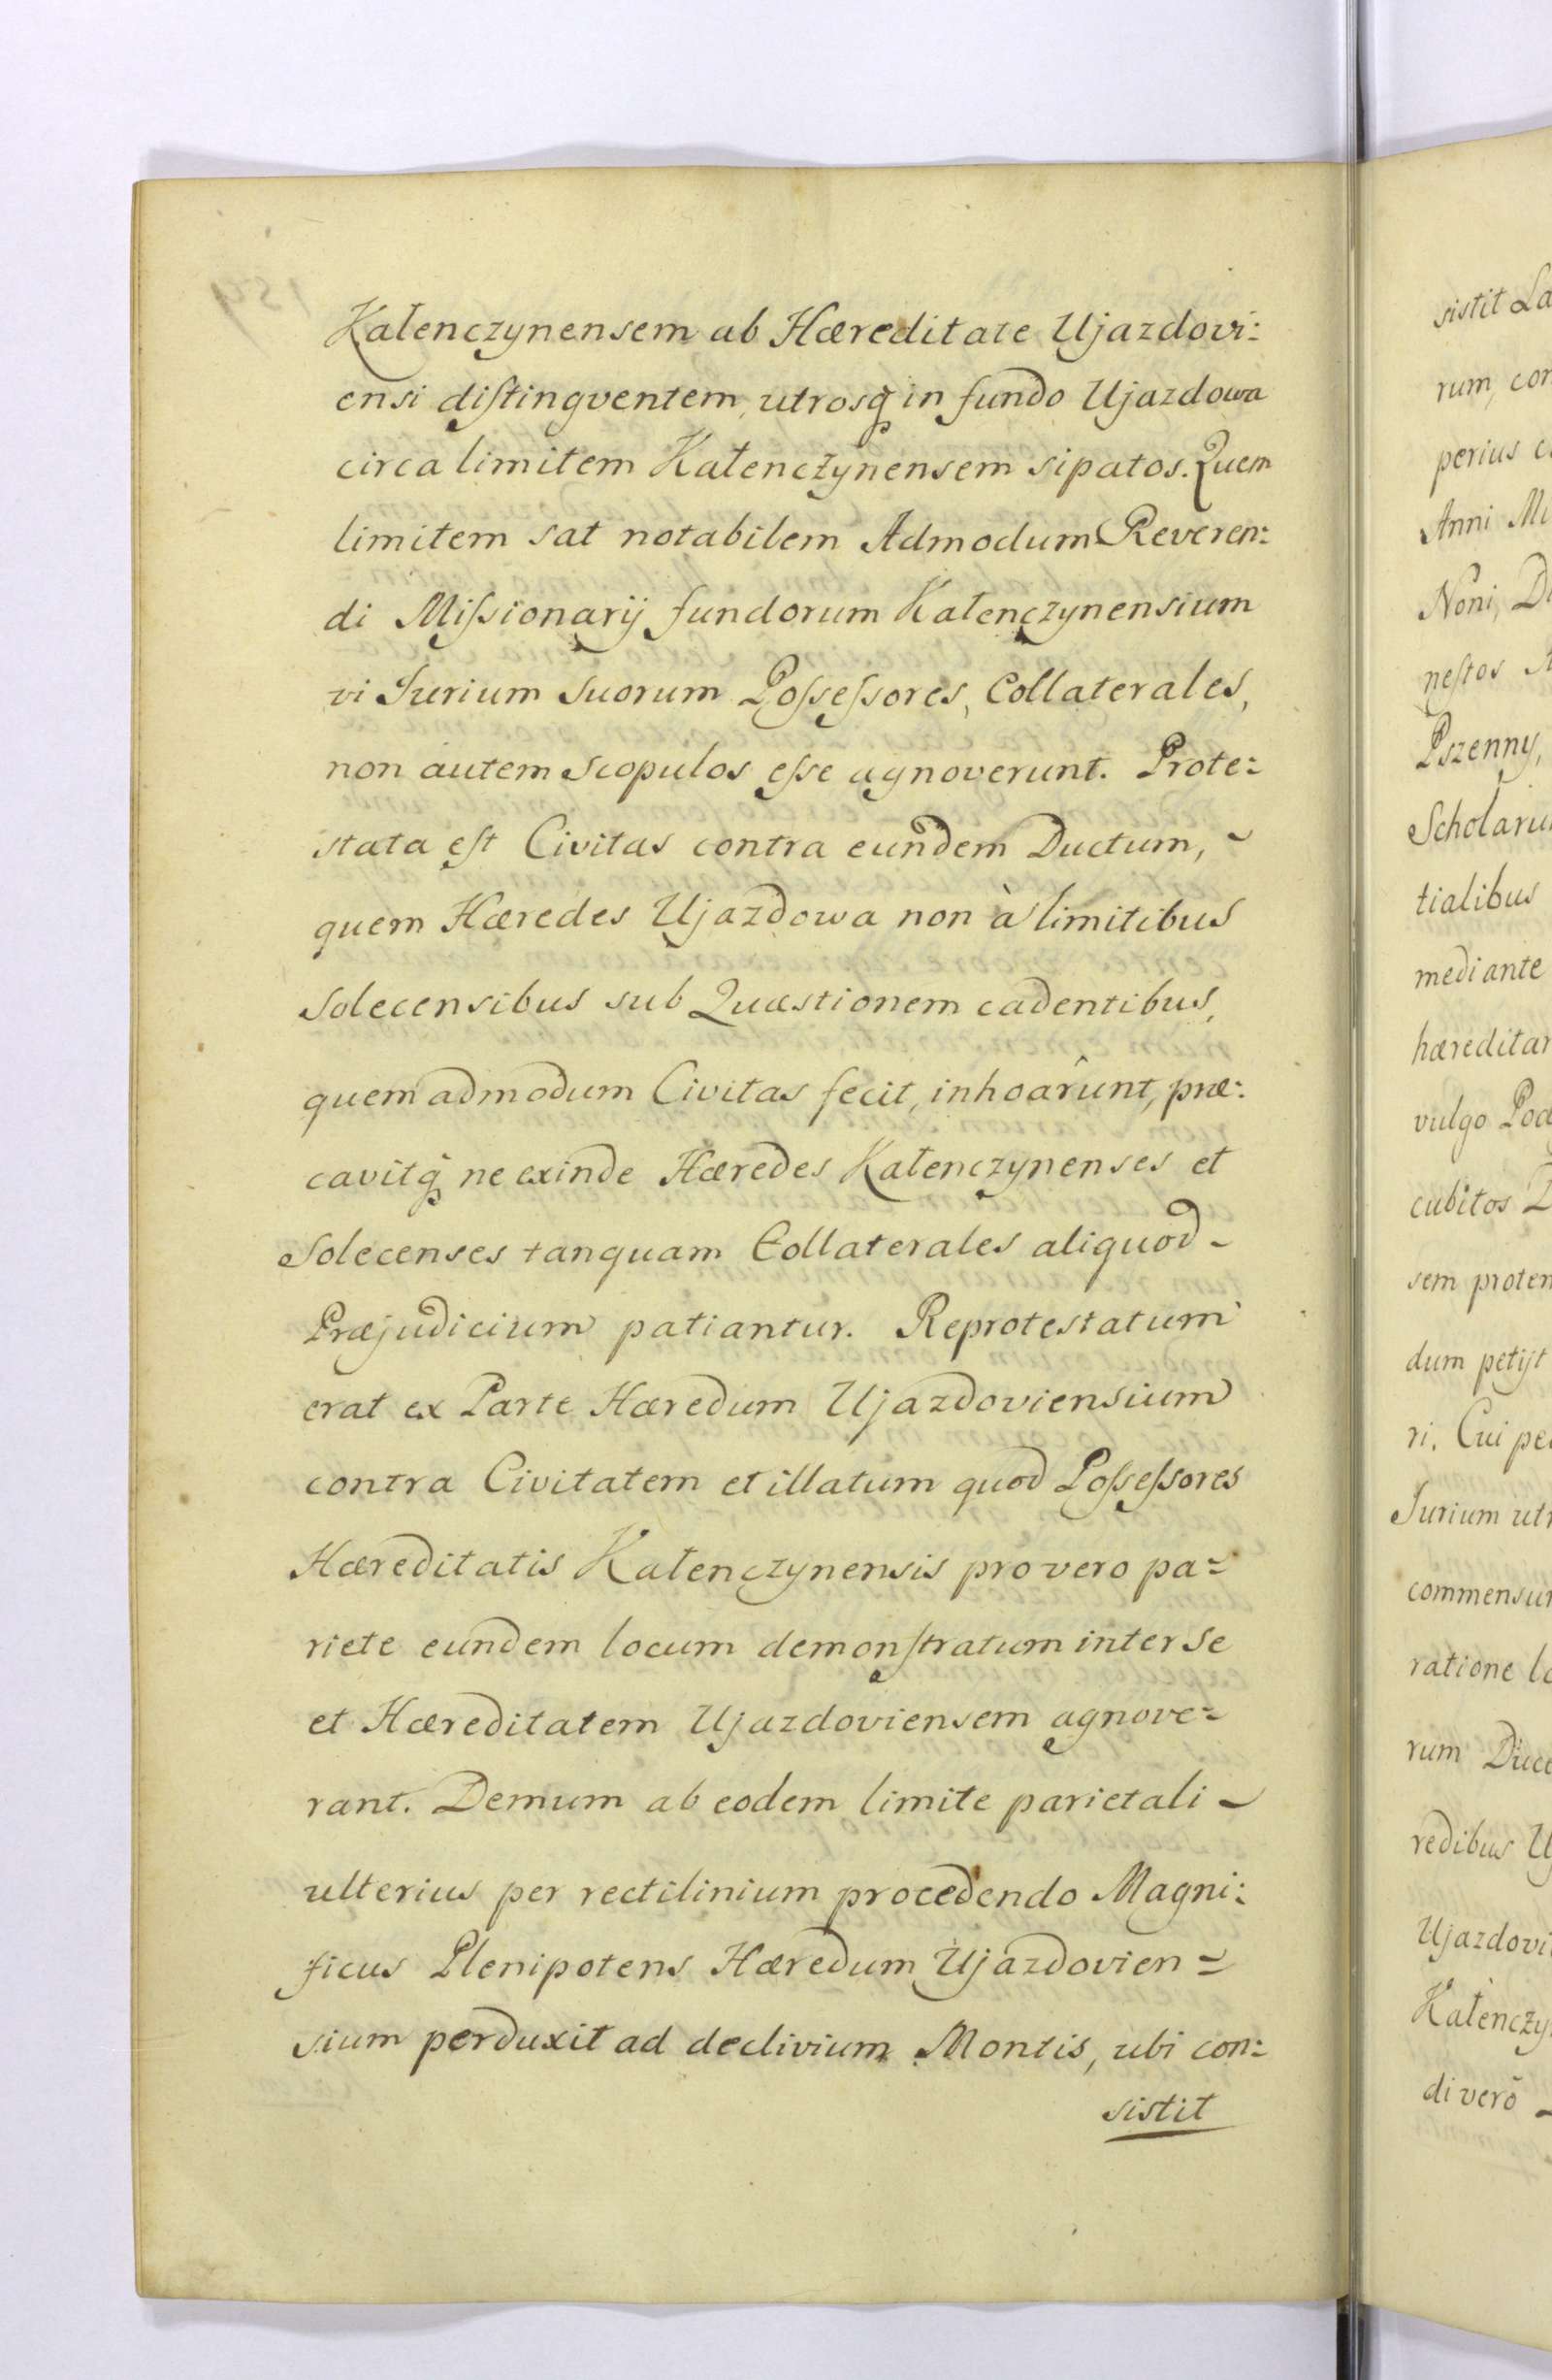 Kałenczynensem ab Hæreditate Ujazdovi:
ensi distingventem, utrosq in fundo Ujazdowa
circa limitem Kałenczynensem sipatos. Quem
limitem sat notabilem Admodum Reveren:
di Missionarij fundorum Kałenczynensium
vi Jurium Suorum Possessores, Collaterales,
non autem Scopulos esse agnoverunt. Prote:
stata est Civitas contra eundem Ductum, ~
quem Hæredes Ujazdowa non à limitibus
Solecensibus sub Quæstionem cadentibus,
quemadmodum Civitas fecit, inhoarûnt, præ:
cavitq ne exinde Hæredes Kałenczynenses et
Solecenses tanquam Collaterales aliquod ~
Præjudicium patiantur. Reprotestatum
erat ex Parte Hæredum Ujazdoviensium
contra Civitatem et illatum quod Possessores
Hæreditatis Kałenczynensis pro vero pa=
riete eundem locum demonstratum inter se
et Hæreditatem Ujazdoviensem agnove=
rant. Demum ab eodem limite parietali ~
ulterius per rectilinium procedendo Magni:
ficus Plenipotens Hæredum Ujazdovien =
sium perduxit ad declivium Montis, ubi con:
sistit
sistit
rum, con
perius
Anni
Noni,
nestos
Pszenny,
Scholaru
tialibus
mediante
hæreditar
vulgo
cubitos
sem proten
dum petijt
ri. Cui
Jurium
commensur
ratione
rum
redibus
Ujazdovi
Kałenczy
di verò ~